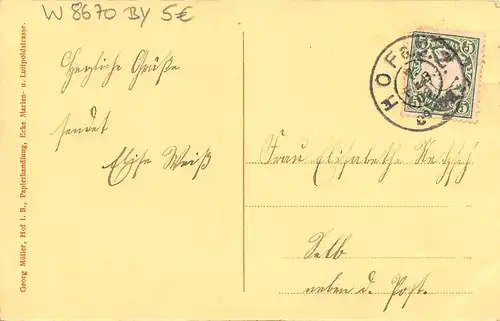 W 8670 BY 5€
Herzliche Grüße
sendet
Elise Weiß
HOF
5
5
Frau Elisabethe
Selb
neben d. Post.
Georg Müller, Hof i. B., Papierhandlung, Ecke Marien- u. Luitpoldstrasse.